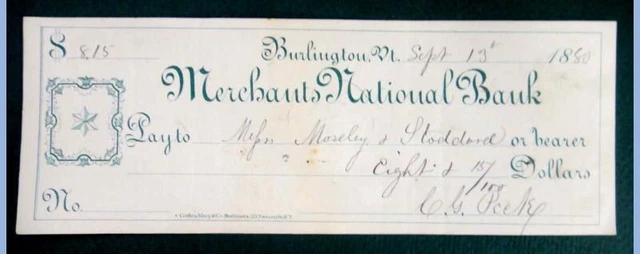 $ 8.15 Burlington, Vt. Sept 13 1880
Merchants National Bank
Pay to Messrs Moseley & Stoddard or bearer
Eight & 15/100 Dollars
No. C. G. Peck